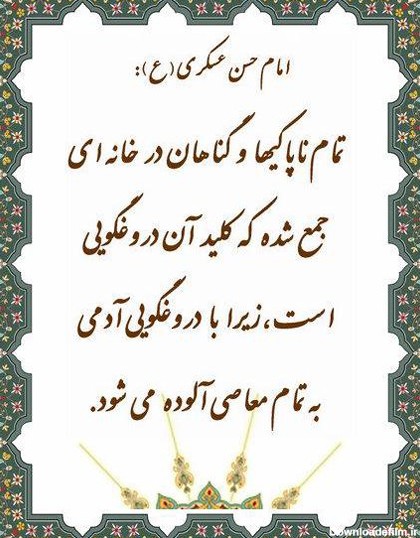 امام حسن عسکری (ع):
تمام ناپاکیها و گناهان در خانه ای
جمع شده که کلید آن دروغگویی
است، زیرا با دروغگویی آدمی
به تمام معاصی آلوده می شود.
Downloadefilm.ir